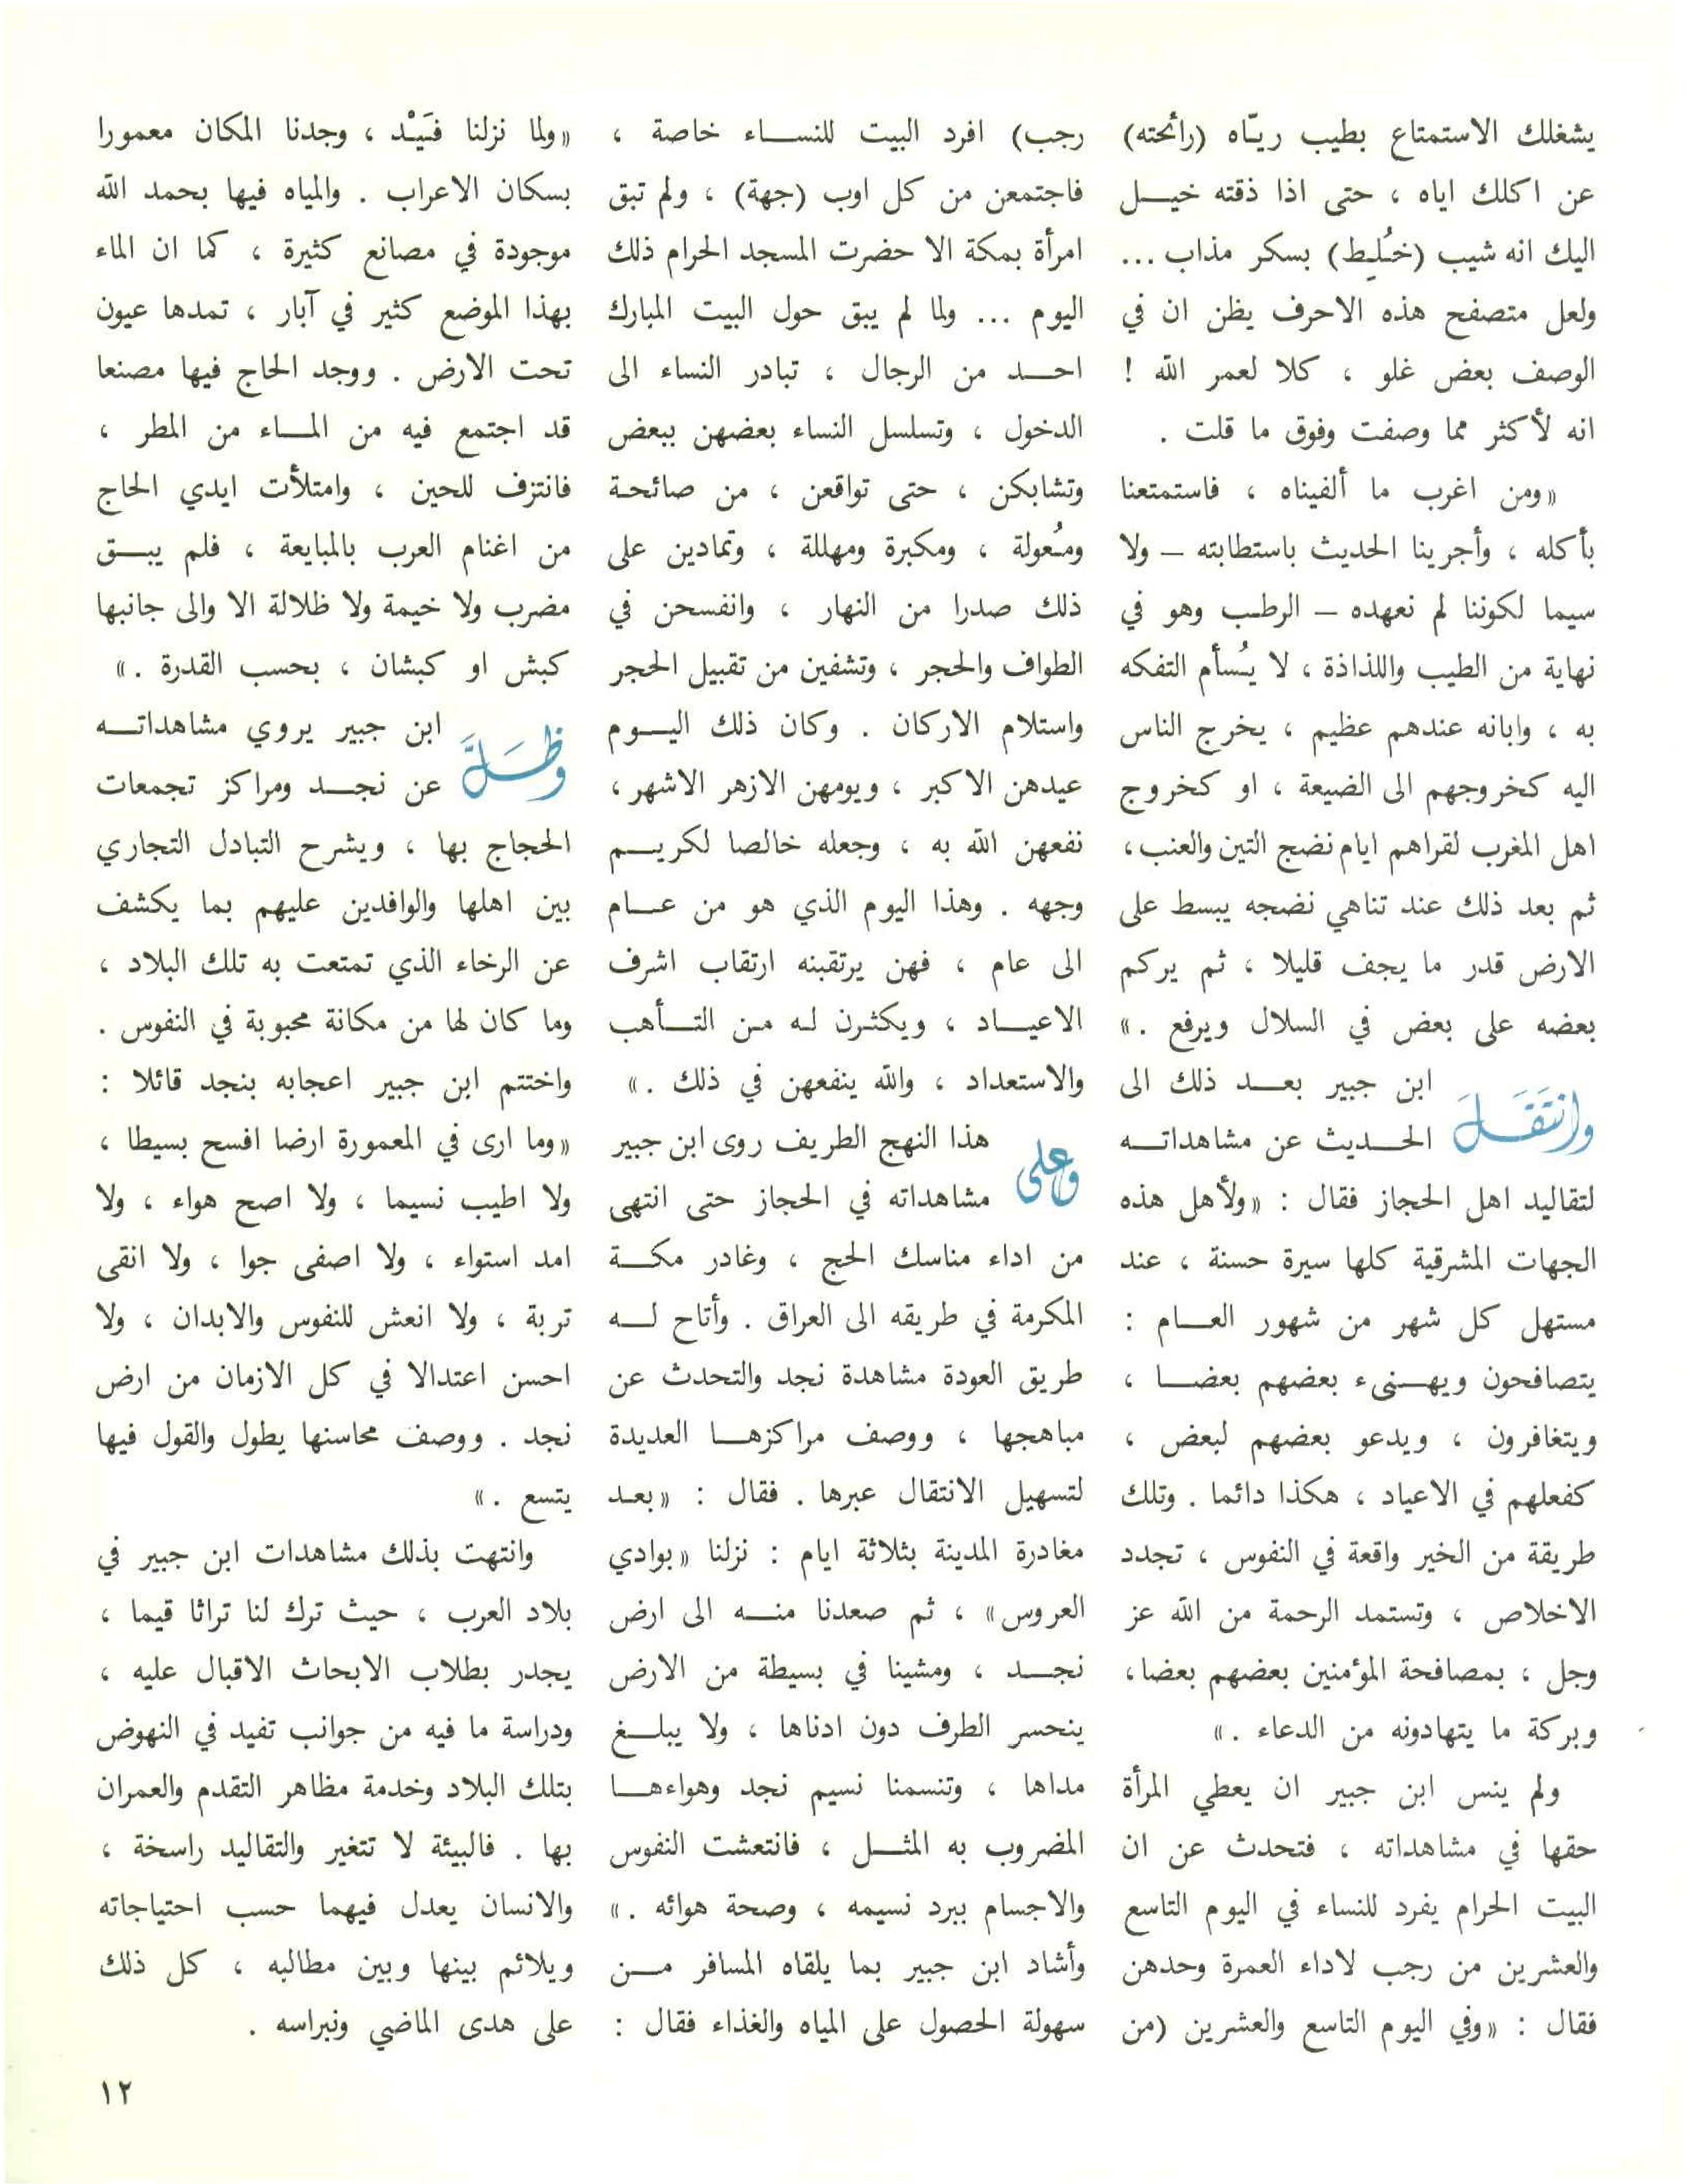 يشغلك الاستمتاع بطيب ريّاه (رائحته)
عن اكلك اياه ، حتى اذا ذقته خيـل
اليك انه شيب (خُلِيط) بسكر مذاب ...
ولعل متصفح هذه الاحرف يظن ان في
الوصف بعض غلو ، كلا لعمر الله !
انه لأكثر مما وصفت وفوق ما قلت .
«ومن اغرب ما ألفيناه ، فاستمتعنا
بأكله ، وأجرينا الحديث باستطابته – ولا
سيما لكوننا لم نعهده – الرطب وهو في
نهاية من الطيب واللذاذة ، لا يُسأم التفكه
به ، وابانه عندهم عظيم ، يخرج الناس
اليه كخروجهم الى الضيعة ، او كخروج
اهل المغرب لقراهم ايام نضج التين والعنب،
ثم بعد ذلك عند تناهي نضجه يبسط على
الارض قدر ما يجف قليلا ، ثم يركم
بعضه على بعض في السلال ويرفع .»
وانتَقَـلَ ابن جبير بعـد ذلك الى
الحـديث عن مشاهداتـه
لتقاليد اهل الحجاز فقال : «ولأهل هذه
الجهات المشرقية كلها سيرة حسنة ، عند
مستهل كل شهر من شهور العـام :
يتصافحون ويهـنىء بعضهم بعضـا ،
ويتغافرون ، ويدعو بعضهم لبعض ،
كفعلهم في الاعياد ، هكذا دائما . وتلك
طريقة من الخير واقعة في النفوس ، تجدد
الاخلاص ، وتستمد الرحمة من الله عز
وجل ، بمصافحة المؤمنين بعضهم بعضا،
وبركة ما يتهادونه من الدعاء .»
ولم ينس ابن جبير ان يعطي المرأة
حقها في مشاهداته ، فتحدث عن ان
البيت الحرام يفرد للنساء في اليوم التاسع
والعشرين من رجب لاداء العمرة وحدهن
فقال : «وفي اليوم التاسع والعشرين (من
رجب) افرد البيت للنسـاء خاصة ،
فاجتمعن من كل اوب (جهة) ، ولم تبق
امرأة بمكة الا حضرت المسجد الحرام ذلك
اليوم ... ولما لم يبق حول البيت المبارك
احـد من الرجال ، تبادر النساء الى
الدخول ، وتسلسل النساء بعضهن ببعض
وتشابكن ، حتى تواقعن ، من صائحة
ومُعولة ، ومكبرة ومهللة ، وتمادين على
ذلك صدرا من النهار ، وانفسحن في
الطواف والحجر ، وتشفين من تقبيل الحجر
واستلام الاركان . وكان ذلك اليـوم
عيدهن الاكبر ، ويومهن الازهر الاشهر،
نفعهن الله به ، وجعله خالصا لكريـم
وجهه . وهذا اليوم الذي هو من عـام
الى عام ، فهن يرتقبنه ارتقاب اشرف
الاعيـاد ، ويكثرن له من التـأهب
والاستعداد ، والله ينفعهن في ذلك .»
وعلى هذا النهج الطريف روى ابن جبير
مشاهداته في الحجاز حتى انتهى
من اداء مناسك الحج ، وغادر مكـة
المكرمة في طريقه الى العراق . وأتاح لـه
طريق العودة مشاهدة نجد والتحدث عن
مباهجها ، ووصف مراكزهـا العديدة
لتسهيل الانتقال عبرها . فقال : «بعد
مغادرة المدينة بثلاثة ايام : نزلنا «بوادي
العروس» ، ثم صعدنا منـه الى ارض
نجـد ، ومشينا في بسيطة من الارض
ينحسر الطرف دون ادناها ، ولا يبلـغ
مداها ، وتنسمنا نسيم نجد وهواءهـا
المضروب به المثـل ، فانتعشت النفوس
والاجسام ببرد نسيمه ، وصحة هوائه .»
وأشاد ابن جبير بما يلقاه المسافر مـن
سهولة الحصول على المياه والغذاء فقال :
«ولما نزلنا فَيْد ، وجدنا المكان معمورا
بسكان الاعراب . والمياه فيها بحمد الله
موجودة في مصانع كثيرة ، كما ان الماء
بهذا الموضع كثير في آبار ، تمدها عيون
تحت الارض . ووجد الحاج فيها مصنعا
قد اجتمع فيه من المـاء من المطر ،
فانتزف للحين ، وامتلأت ايدي الحاج
من اغنام العرب بالمبايعة ، فلم يبـق
مضرب ولا خيمة ولا ظلالة الا والى جانبها
كبش او كبشان ، بحسب القدرة .»
وظَـلَّ ابن جبير يروي مشاهداتـه
عن نجـد ومراكز تجمعات
الحجاج بها ، ويشرح التبادل التجاري
بين اهلها والوافدين عليهم بما يكشف
عن الرخاء الذي تمتعت به تلك البلاد ،
وما كان لها من مكانة محبوبة في النفوس .
واختتم ابن جبير اعجابه بنجد قائلا :
«وما ارى في المعمورة ارضا افسح بسيطا ،
ولا اطيب نسيما ، ولا اصح هواء ، ولا
امد استواء ، ولا اصفى جوا ، ولا انقى
تربة ، ولا انعش للنفوس والابدان ، ولا
احسن اعتدالا في كل الازمان من ارض
نجد . ووصف محاسنها يطول والقول فيها
يتسع .»
وانتهت بذلك مشاهدات ابن جبير في
بلاد العرب ، حيث ترك لنا تراثا قيما ،
يجدر بطلاب الابحاث الاقبال عليه ،
ودراسة ما فيه من جوانب تفيد في النهوض
بتلك البلاد وخدمة مظاهر التقدم والعمران
بها . فالبيئة لا تتغير والتقاليد راسخة ،
والانسان يعدل فيهما حسب احتياجاته
ويلائم بينها وبين مطالبه ، كل ذلك
على هدى الماضي ونبراسه .
١٢